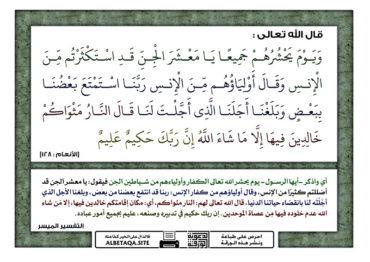 قال الله تعالى :
وَيَوْمَ يَحْشُرُهُمْ جَمِيعًا يَا مَعْشَرَ الْجِنِّ قَدِ اسْتَكْثَرْتُم مِّنَ
الْإِنسِ وَقَالَ أَوْلِيَاؤُهُم مِّنَ الْإِنسِ رَبَّنَا اسْتَمْتَعَ بَعْضُنَا
بِبَعْضٍ وَبَلَغْنَا أَجَلَنَا الَّذِي أَجَّلْتَ لَنَا قَالَ النَّارُ مَثْوَاكُمْ
خَالِدِينَ فِيهَا إِلَّا مَا شَاءَ اللَّهُ إِنَّ رَبَّكَ حَكِيمٌ عَلِيمٌ
[الأنعام : ١٢٨]
أي واذكر -أيها الرسول- يوم يحشر الله تعالى الكفار وأولياءهم من شياطين الجن فيقول: يا معشر الجن قد
أضللتم كثيرًا من الإنس، وقال أولياؤهم من كفار الإنس: ربنا قد انتفع بعضنا من بعض، وبلغنا الأجل الذي
أجَّلْتَه لنا بانقضاء حياتنا الدنيا، قال الله تعالى لهم: النار مثواكم، أي: مكان إقامتكم خالدين فيها، إلا مَن شاء
الله عدم خلوده فيها من عصاة الموحدين. إن ربك حكيم في تدبيره وصنعه، عليم بجميع أمور عباده.
التفسير الميسر
احرص على طباعة
ونشر هذه الورقة
ALBETAQA.SITE